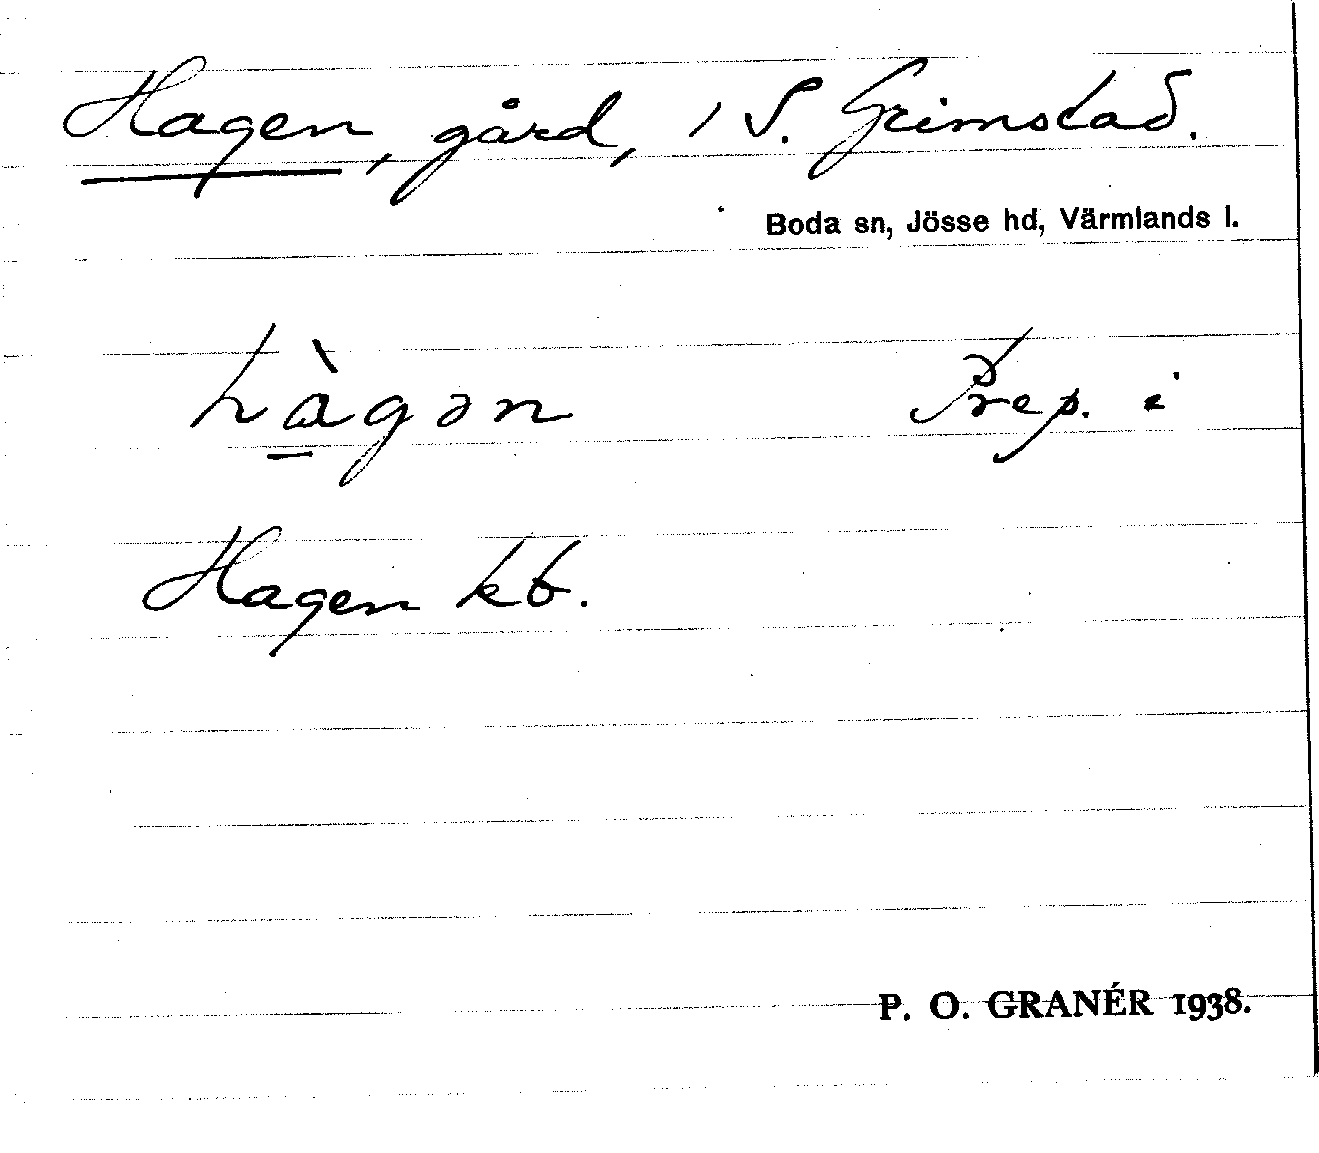 Hagen, gård, i S. Grimstad.
Boda sn, Jösse hd, Värmlands l.
hàgən Prep. i
Hagen kb.
P. O. GRANÉR 1938.